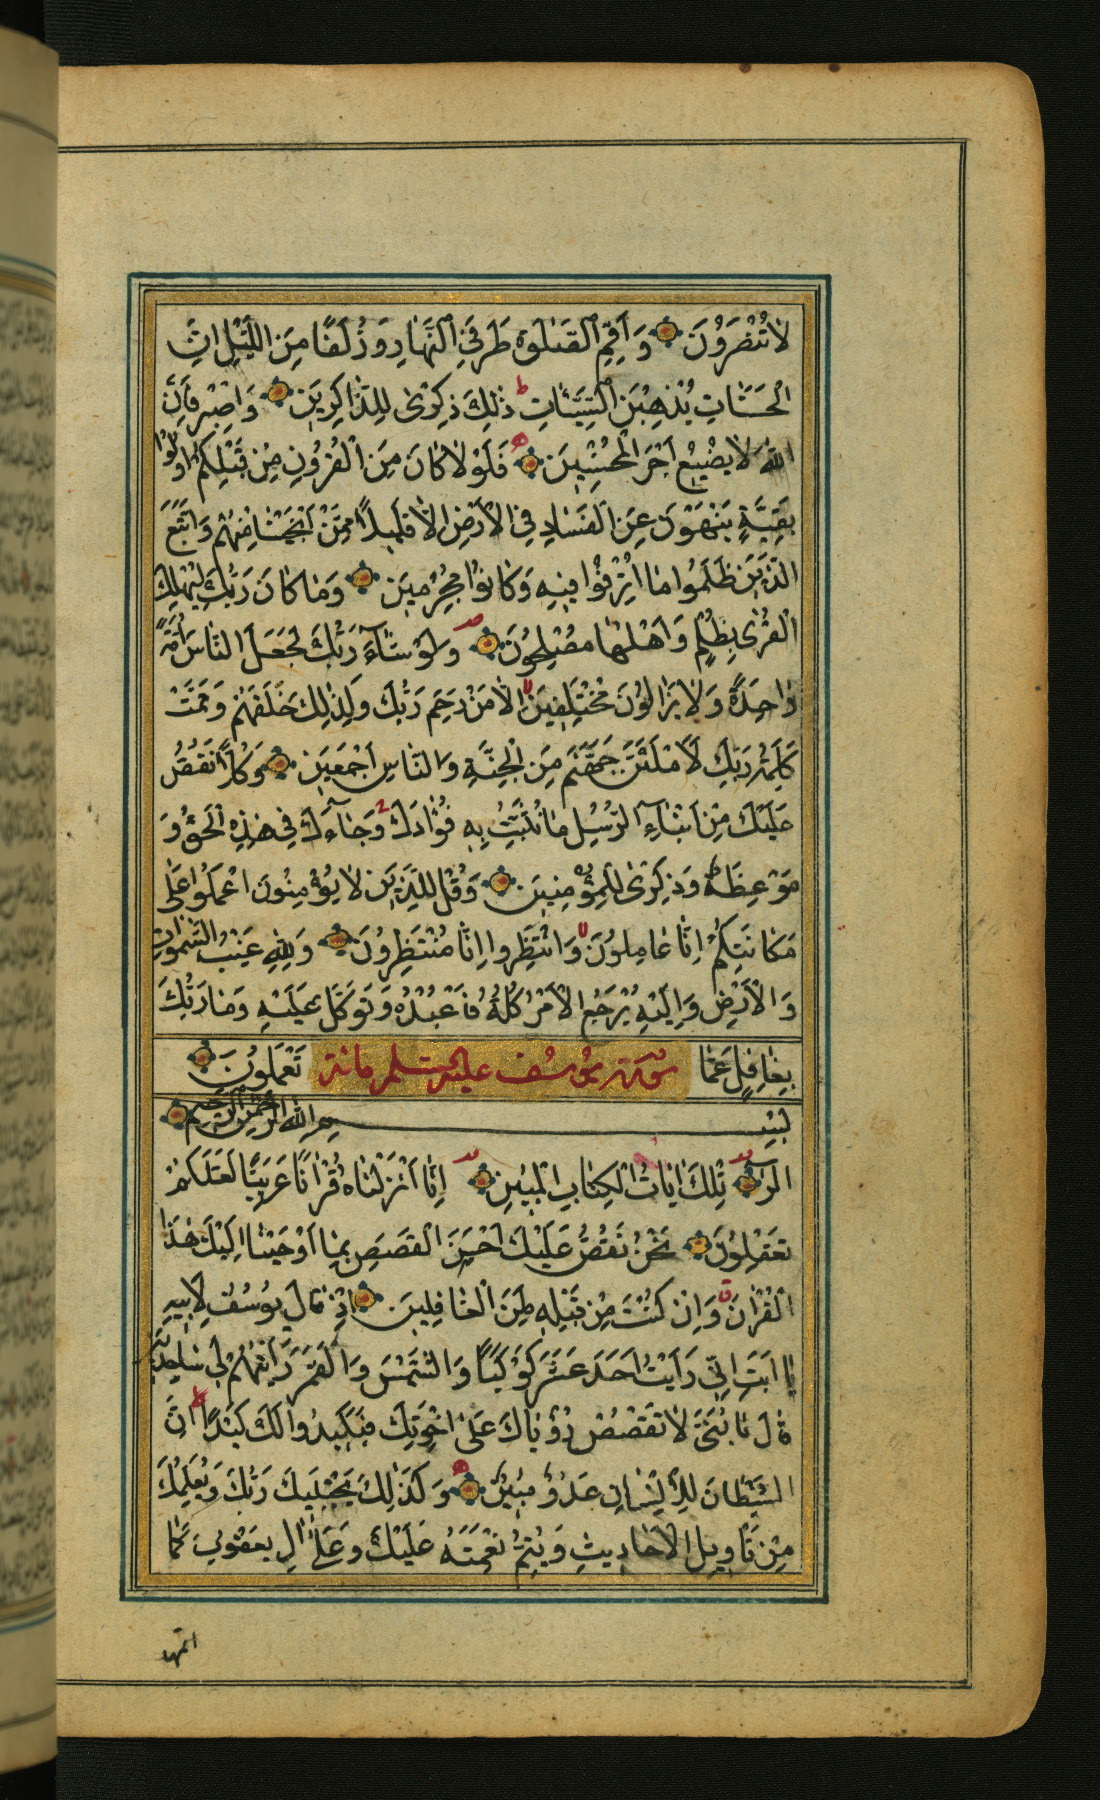 لَا تُنْصَرُونَ وَاَقِمِ الصَّلٰوةَ طَرَفَيِ النَّهَارِ وَزُلَفًا مِنَ اللَّيْلِ اِنَّ
الْحَسَنَاتِ يُذْهِبْنَ السَّيِّئَاتِ ط ذٰلِكَ ذِكْرٰى لِلذَّاكِرِينَ وَاصْبِرْ فَاِنَّ
اللّٰهَ لَا يُضِيعُ اَجْرَ الْمُحْسِنِينَ فَلَوْلَا كَانَ مِنَ الْقُرُونِ مِنْ قَبْلِكُمْ اُولُوا
بَقِيَّةٍ يَنْهَوْنَ عَنِ الْفَسَادِ فِي الْاَرْضِ اِلَّا قَلِيلًا مِمَّنْ اَنْجَيْنَا مِنْهُمْ وَاتَّبَعَ
الَّذِينَ ظَلَمُوا مَا اُتْرِفُوا فِيهِ وَكَانُوا مُجْرِمِينَ وَمَا كَانَ رَبُّكَ لِيُهْلِكَ
الْقُرٰى بِظُلْمٍ وَاَهْلُهَا مُصْلِحُونَ وَلَوْ شَآءَ رَبُّكَ لَجَعَلَ النَّاسَ اُمَّةً
وَاحِدَةً وَلَا يَزَالُونَ مُخْتَلِفِينَ لا اِلَّا مَنْ رَحِمَ رَبُّكَ وَلِذٰلِكَ خَلَقَهُمْ وَتَمَّتْ
كَلِمَةُ رَبِّكَ لَاَمْلَئَنَّ جَهَنَّمَ مِنَ الْجِنَّةِ وَالنَّاسِ اَجْمَعِينَ وَكُلًّا نَقُصُّ
عَلَيْكَ مِنْ اَنْبَآءِ الرُّسُلِ مَا نُثَبِّتُ بِهِ فُؤَادَكَ وَجَآءَكَ فِي هٰذِهِ الْحَقُّ وَ
مَوْعِظَةٌ وَذِكْرٰى لِلْمُؤْمِنِينَ وَقُلْ لِلَّذِينَ لَا يُؤْمِنُونَ اعْمَلُوا عَلٰى
مَكَانَتِكُمْ اِنَّا عَامِلُونَ لا وَانْتَظِرُوا اِنَّا مُنْتَظِرُونَ وَلِلّٰهِ غَيْبُ السَّمٰوَاتِ
وَالْاَرْضِ وَاِلَيْهِ يُرْجَعُ الْاَمْرُ كُلُّهُ فَاعْبُدْهُ وَتَوَكَّلْ عَلَيْهِ وَمَا رَبُّكَ
بِغَافِلٍ عَمَّا تَعْمَلُونَ
سورة يوسف عليه السلم مائة
بِسْمِ اللّٰهِ الرَّحْمٰنِ الرَّحِيمِ
الٓرٰ تِلْكَ اٰيَاتُ الْكِتَابِ الْمُبِينِ اِنَّا اَنْزَلْنَاهُ قُرْاٰنًا عَرَبِيًّا لَعَلَّكُمْ
تَعْقِلُونَ نَحْنُ نَقُصُّ عَلَيْكَ اَحْسَنَ الْقَصَصِ بِمَا اَوْحَيْنَا اِلَيْكَ هٰذَا
الْقُرْاٰنَ ق وَاِنْ كُنْتَ مِنْ قَبْلِهِ لَمِنَ الْغَافِلِينَ اِذْ قَالَ يُوسُفُ لِاَبِيهِ
يَا اَبَتِ اِنِّي رَاَيْتُ اَحَدَ عَشَرَ كَوْكَبًا وَالشَّمْسَ وَالْقَمَرَ رَاَيْتُهُمْ لِي سَاجِدِينَ
قَالَ يَا بُنَيَّ لَا تَقْصُصْ رُؤْيَاكَ عَلٰى اِخْوَتِكَ فَيَكِيدُوا لَكَ كَيْدًا ط اِنَّ
الشَّيْطَانَ لِلْاِنْسَانِ عَدُوٌّ مُبِينٌ وَكَذٰلِكَ يَجْتَبِيكَ رَبُّكَ وَيُعَلِّمُكَ
مِنْ تَأْوِيلِ الْاَحَادِيثِ وَيُتِمُّ نِعْمَتَهُ عَلَيْكَ وَعَلٰى اٰلِ يَعْقُوبَ كَمَا
اتمها